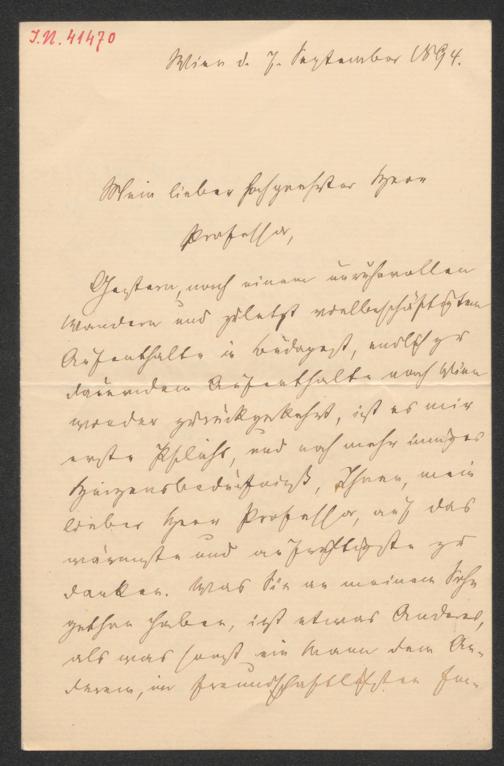 J.N. 41470
Wien d. 7. September 1894.
Mein lieber hochgeehrter Herr
Professor,
Gestern, nach einem unruhevollen
Wandern und zuletzt vielbeschäftigtem
Aufenthalte in Budapest, endlich zu
dauerndem Aufenthalte nach Wien
wieder zurückgekehrt, ist es mir
erste Pflicht, und noch mehr inniges
Herzensbedürfniß, Ihnen, mein
lieber Herr Professor, auf das
wärmste und aufrichtigste zu
danken. Was Sie an meinem Sohn
gethan haben, ist etwas Anderes,
als was sonst ein Mann dem An-
deren, im freundschaftlichsten